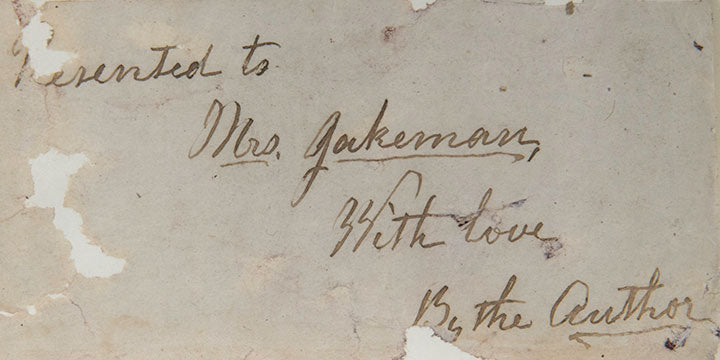 Presented to
Mrs. Jakeman,
With love
By the Author